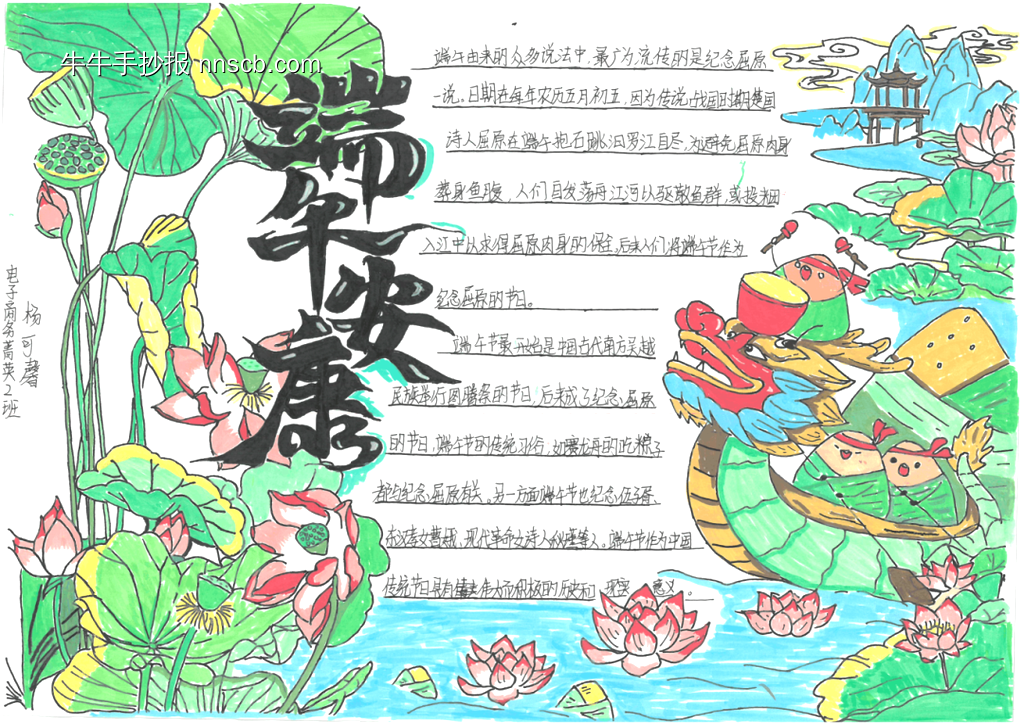 牛牛手抄报 nnscb.com
端午安康
端午由来的众多说法中,最广为流传的是纪念屈原
一说。日期在每年农历五月初五,因为传说战国时期楚国
诗人屈原在端午抱石跳汨罗江自尽,为避免屈原肉身
葬身鱼腹,人们自发荡舟江河以驱散鱼群,或投米团
入江中以求得屈原肉身的保全,后来人们将端午节作为
纪念屈原的节日。
端午节最开始是中国古代南方吴越
民族举行图腾祭的节日,后来成了纪念屈原
的节日,端午节的传统习俗,如赛龙舟的吃粽子
都与纪念屈原有关。另一方面端午节也纪念伍子胥、
东汉孝女曹娥、现代革命女诗人秋瑾等人。端午节作为中国
传统节日具有 积极的历史和 现实 意义。
电子商务菁英2班
杨可馨